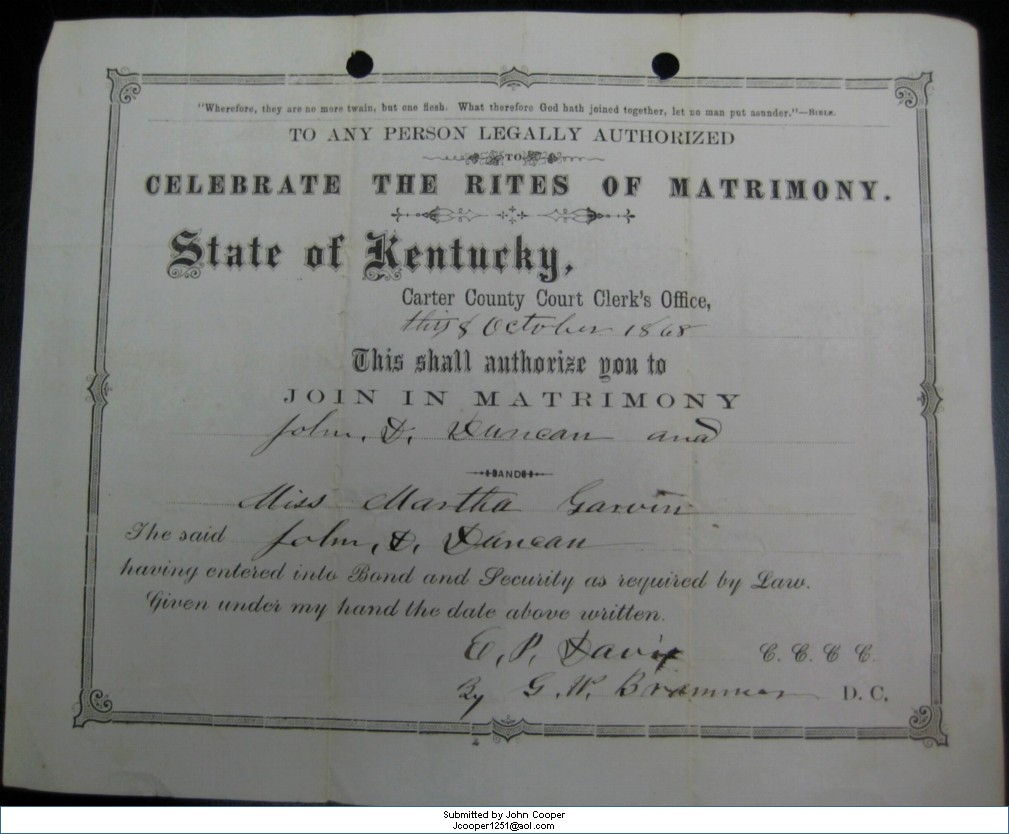 "Wherefore, they are no more twain, but one flesh. What therefore God hath joined together, let no man put asunder."—BIBLE.
TO ANY PERSON LEGALLY AUTHORIZED
TO
CELEBRATE THE RITES OF MATRIMONY.
State of Kentucky,
Carter County Court Clerk's Office,
this 8 October 1868
This shall authorize you to
JOIN IN MATRIMONY
John. D. Duncan and
AND
Miss Martha Garvin
The said John, D. Duncan
having entered into Bond and Security as required by Law.
Given under my hand the date above written.
E. P. Davis C. C. C. C.
By G. W. Brammer D. C.
Submitted by John Cooper
Jcooper1251@aol.com